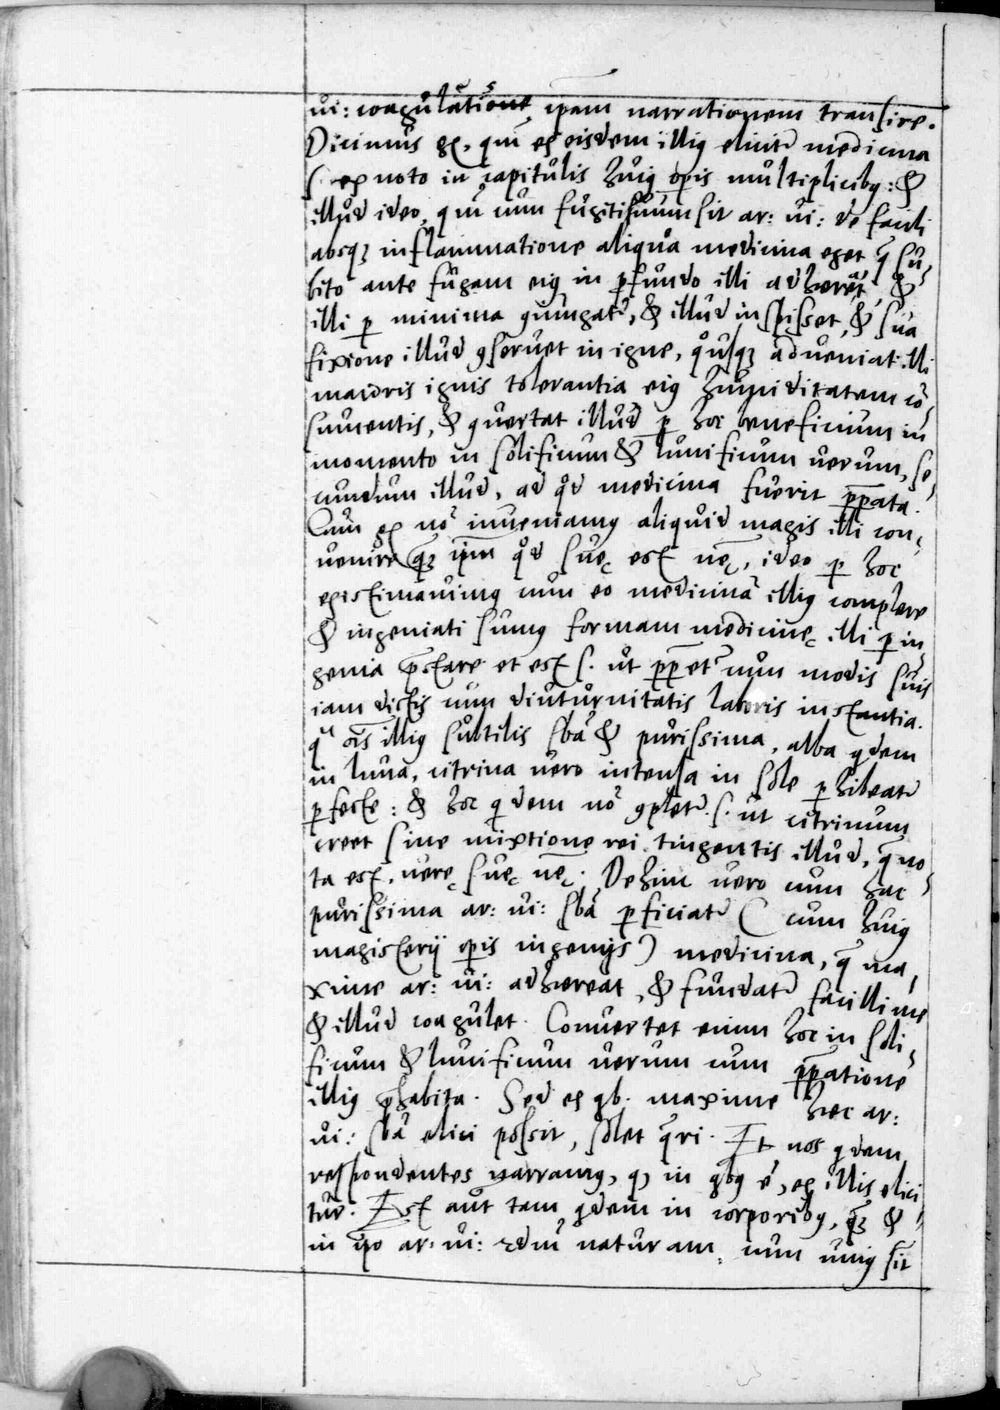 vi: coagulationē, ipsam narrationem transire.
Dicimus g̃, qm̃ ex eisdem illiꝰ elicitr̃ medicina
s. ex noto in capitulis huiꝰ oꝑis multiplicibꝰ: &
illud ideo, qm̃ cum fugitiuum sit ar: vi: de facili
absqꝫ inflammatione aliqua medicina eget q̃ su-
bito ante fugam eiꝰ in ꝓfundo illi adhæreat &
illi ꝑ minima ꝯiungatr̃, & illud inspisset, & sua
fixione illud ꝯseruet in igne, quousqꝫ adueniat illi
maioris ignis tolerantia eiꝰ humiditatem cō-
sumentis, & ꝯuertat illud ꝑ hoc beneficium in
momento in solificum & lunificum verum, se-
cundum illud, ad qd̃ medicina fuerit p̄ꝑata.
Cum g̃ nō inueniamꝰ aliquid magis illi con-
uenire qꝫ ip̃m qd̃ suę est nr̃ę, ideo ꝑ hoc
existimauimꝰ cum eo medicinā illiꝰ complere
& ingeniati sumꝰ formam medicinę illi ꝑ in-
genia p̄stare et est s. ut p̄ꝑetr̃ cum modis suis
iam dictis cum diuturnitatis laboris instantia.
q̃ oīs illiꝰ subtilis sb̃a & purissima, alba qdem
in luna, citrina vero intensa in sole ꝑhibeatr̃
ꝑfecte: & hoc qdem nō ꝯpletr̃. s. ut citrinum
creet sine mixtione rei tingentis illud, quę no-
ta est, verę suę nr̃ę. Dehinc vero cum hac
purissima ar: vi: sb̃a ꝑficiatr̃ (cum huiꝰ
magisterij oꝑis ingenijs) medicina, q̃ ma-
xime ar: vi: adhæreat, & fundatr̃ facillime
& illud coagulet. Conuertet enim hoc in soli-
ficum & lunificum verum cum p̄ꝑatione
illiꝰ p̄habita. Sed ex qb. maxime hæc ar:
vi: sb̃a elici possit, solet q̃ri. Et nos qdem
respondentes narramꝰ, q, in qbꝰ ē, ex illis elici-
tur. Est aut̃ tam qdem in corporibꝰ, qꝫ &
in ip̃o ar: vi: sedm̃ naturam, cum uniꝰ sit